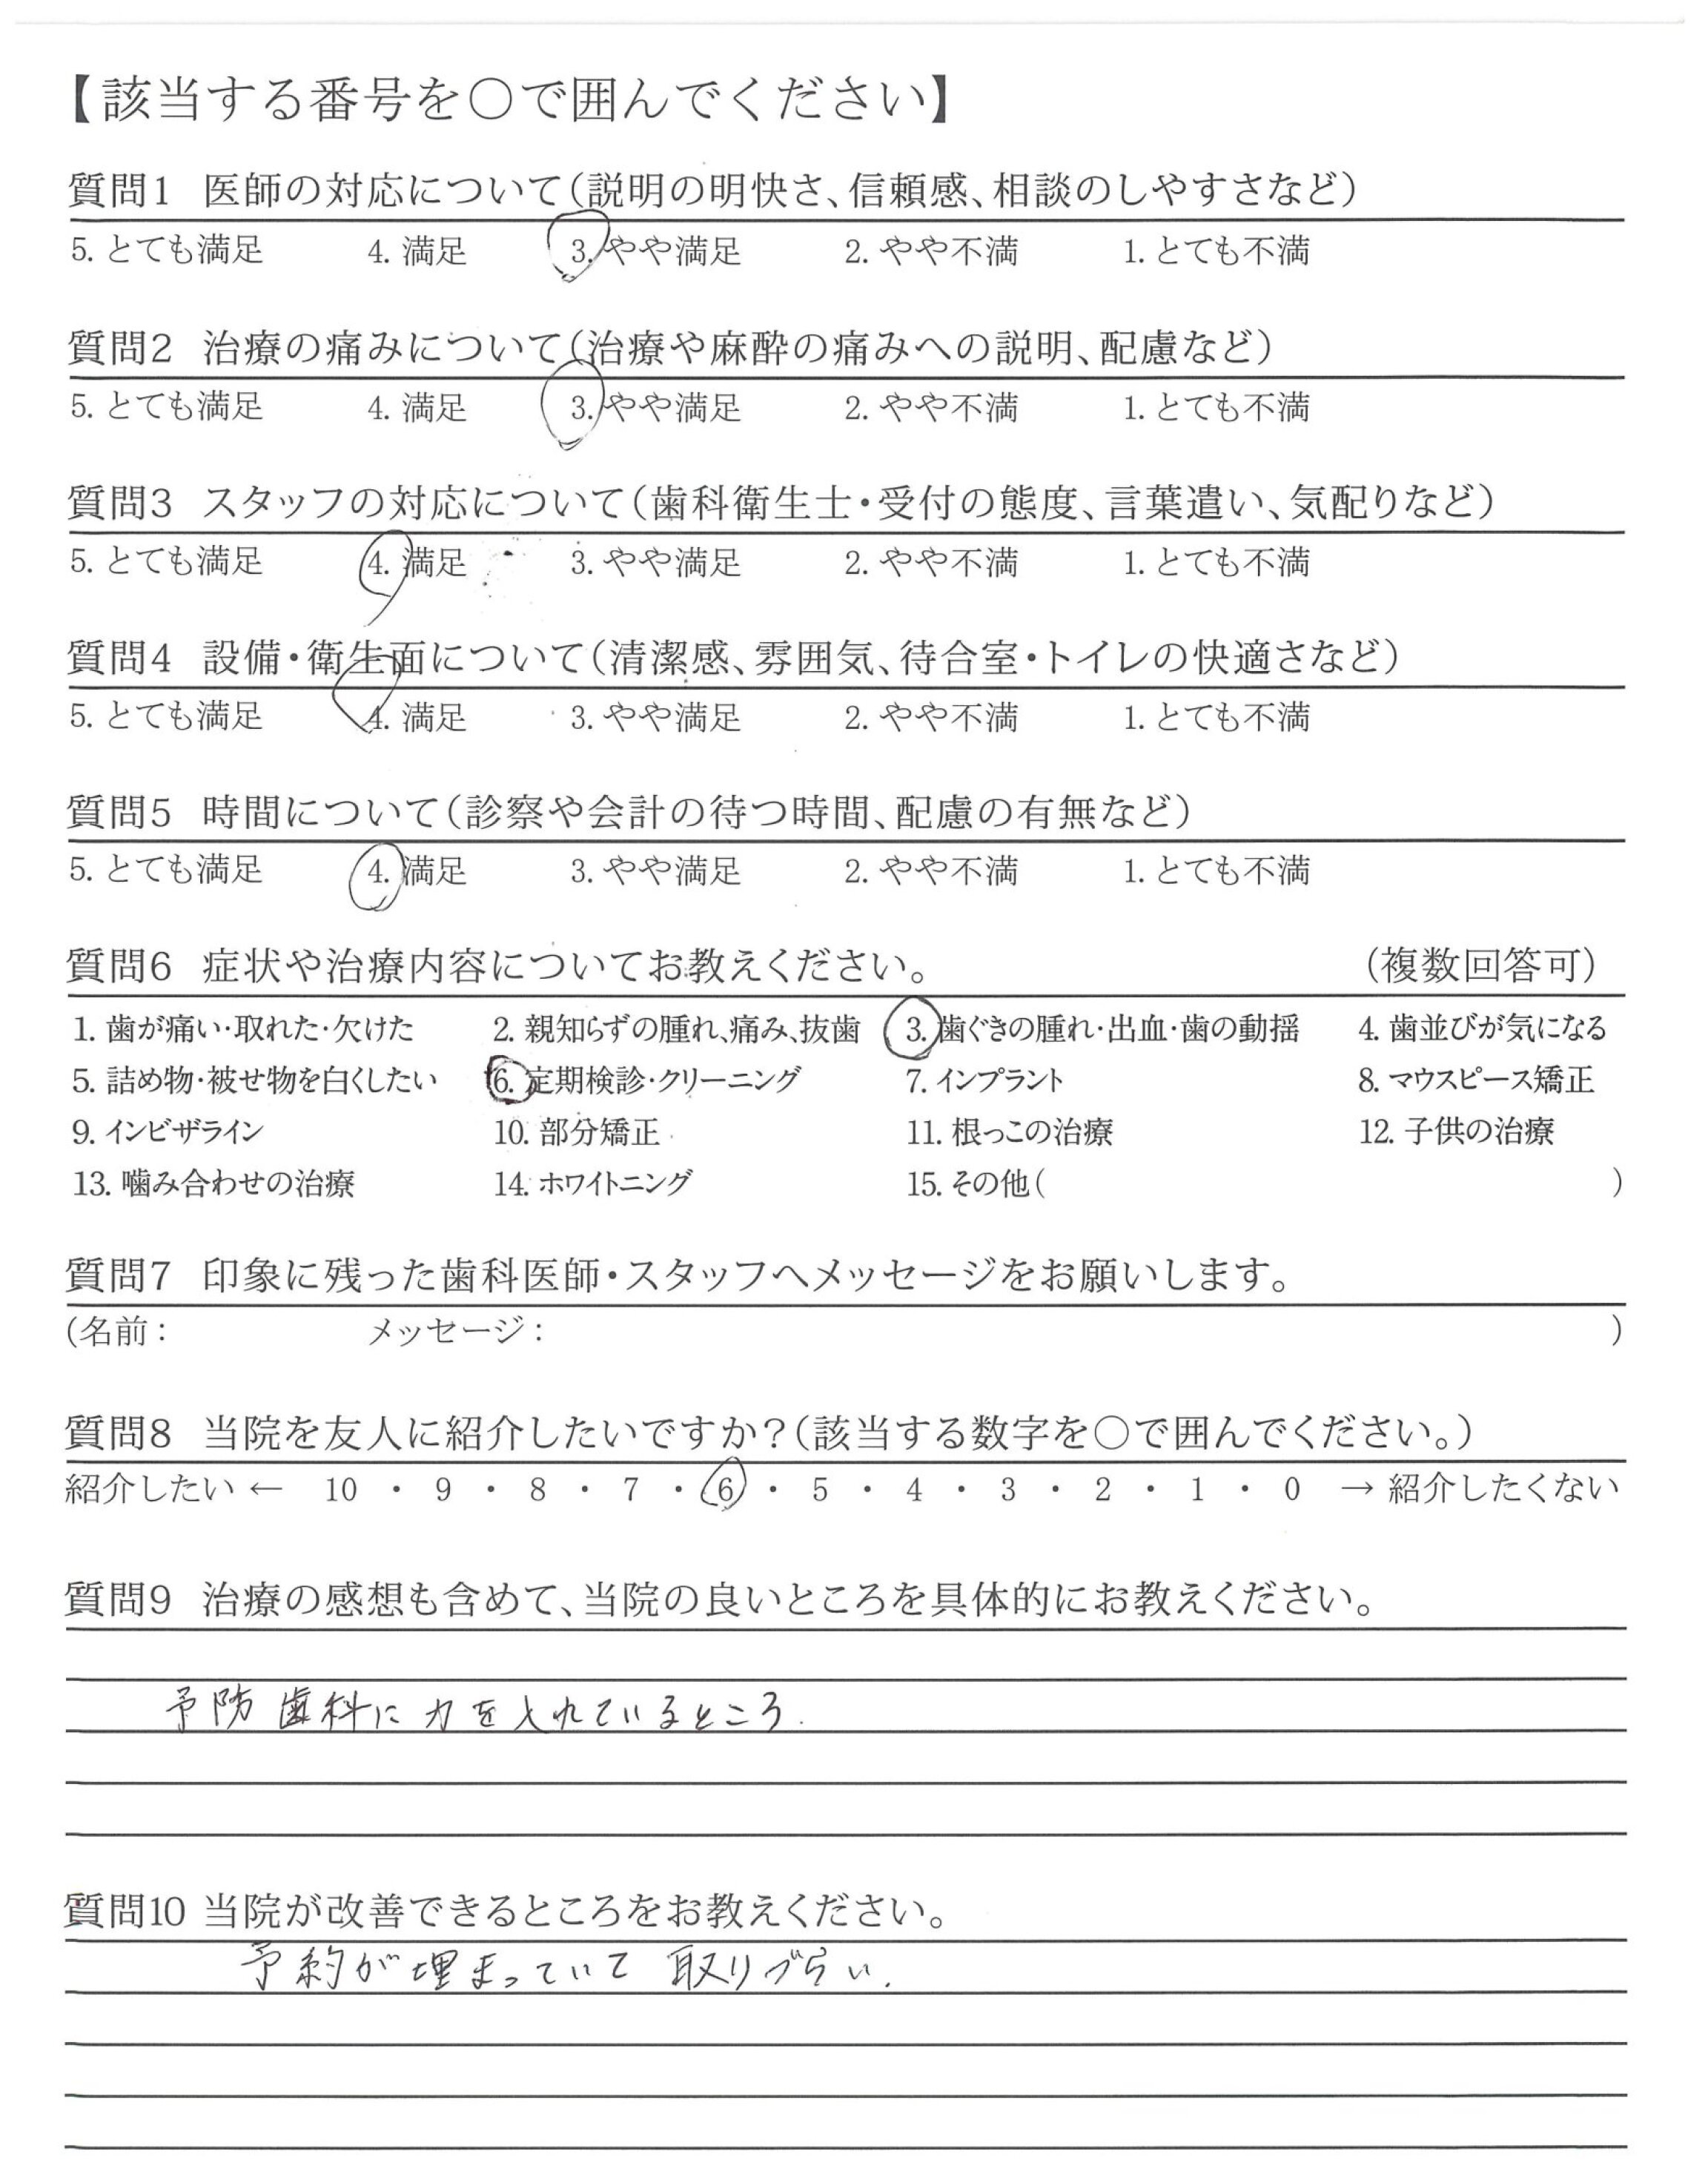 【該当する番号を○で囲んでください】
質問1 医師の対応について(説明の明快さ、信頼感、相談のしやすさなど)
5. とても満足 4. 満足 3. やや満足 2. やや不満 1. とても不満
質問2 治療の痛みについて(治療や麻酔の痛みへの説明、配慮など)
5. とても満足 4. 満足 3. やや満足 2. やや不満 1. とても不満
質問3 スタッフの対応について(歯科衛生士・受付の態度、言葉遣い、気配りなど)
5. とても満足 4. 満足 3. やや満足 2. やや不満 1. とても不満
質問4 設備・衛生面について(清潔感、雰囲気、待合室・トイレの快適さなど)
5. とても満足 4. 満足 3. やや満足 2. やや不満 1. とても不満
質問5 時間について(診察や会計の待つ時間、配慮の有無など)
5. とても満足 4. 満足 3. やや満足 2. やや不満 1. とても不満
質問6 症状や治療内容についてお教えください。 (複数回答可)
1. 歯が痛い・取れた・欠けた 2. 親知らずの腫れ、痛み、抜歯 3. 歯ぐきの腫れ・出血・歯の動揺 4. 歯並びが気になる
5. 詰め物・被せ物を白くしたい 6. 定期検診・クリーニング 7. インプラント 8. マウスピース矯正
9. インビザライン 10. 部分矯正 11. 根っこの治療 12. 子供の治療
13. 噛み合わせの治療 14. ホワイトニング 15. その他( )
質問7 印象に残った歯科医師・スタッフへメッセージをお願いします。
(名前: メッセージ: )
質問8 当院を友人に紹介したいですか?(該当する数字を○で囲んでください。)
紹介したい ← 10 ・ 9 ・ 8 ・ 7 ・ 6 ・ 5 ・ 4 ・ 3 ・ 2 ・ 1 ・ 0 → 紹介したくない
質問9 治療の感想も含めて、当院の良いところを具体的にお教えください。
予防歯科に力を入れているところ.
質問10 当院が改善できるところをお教えください。
予約が埋まっていて取りづらい.